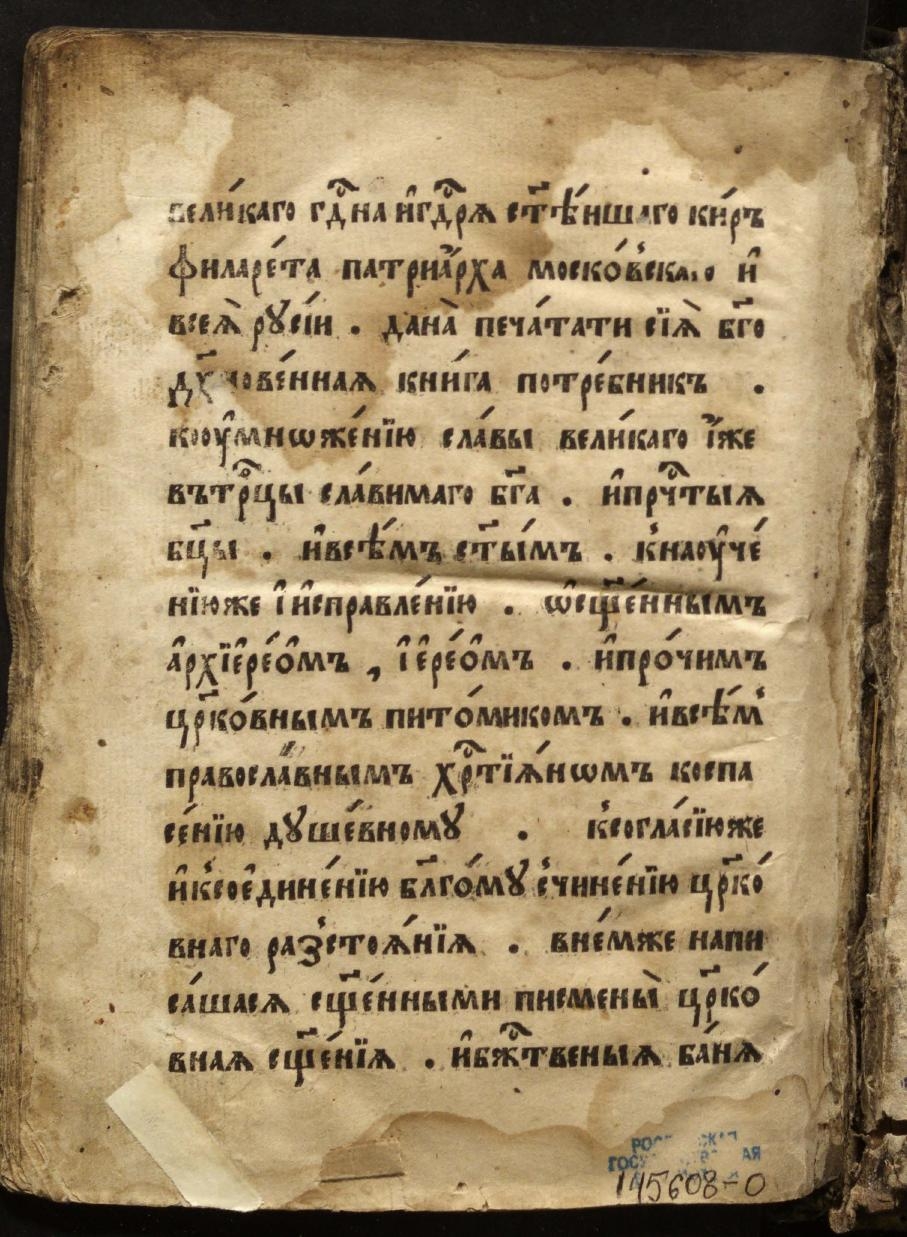 вели́каго гдⷭ҇на и҆гдⷭ҇рѧ ст҃ѣ́ишаго ки́ръ
филаре́та патриа́рха моско́вскаго и҆
всеѧ̀ рꙋсі́и . дана̀ печа́тати сїѧ̀ бг҃о
дх҃нове́ннаѧ кни́га потре́бникъ .
коᲂу҆мнѡже́нїю сла́вы вели́каго і҆́же
вътрⷪ҇цы сла́вимаго бг҃а . и҆прчⷭ҇тыѧ
бц҃ы . и҆всѣ́мъ ст҃ы́мъ . к̾наᲂу҆че́
нїюже і҆ и҆справле́нїю . ѡ҆сщ҃е́ннымъ
а҆рхїе҆рео́мъ , і҆ере́омъ . и҆про́чимъ
цр҃ко́внымъ пито́микомъ . и҆всѣ́м̾
правосла́внымъ хрⷭ҇тїѧ́нѡмъ коспа
се́нїю дꙋше́вномꙋ . к̾согла́сїюже
и҆к̾сое҆дине́нїю бл҃го́мꙋ с̾чине́нїю цр҃ко́
внаго раз̾стоѧ́нїѧ . вне́мже напи
са́шасѧ сщ҃е́нными писмены̀ цр҃ко́
внаѧ сщ҃е́нїѧ . и҆бжⷭ҇твеныѧ ба́нѧ
145608-О